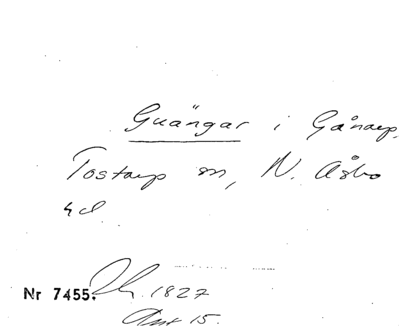 Guängar i Gånarp,
Tostarp sn, N. Åsbo
hd
Nr 7455. 1827
Akt 15.